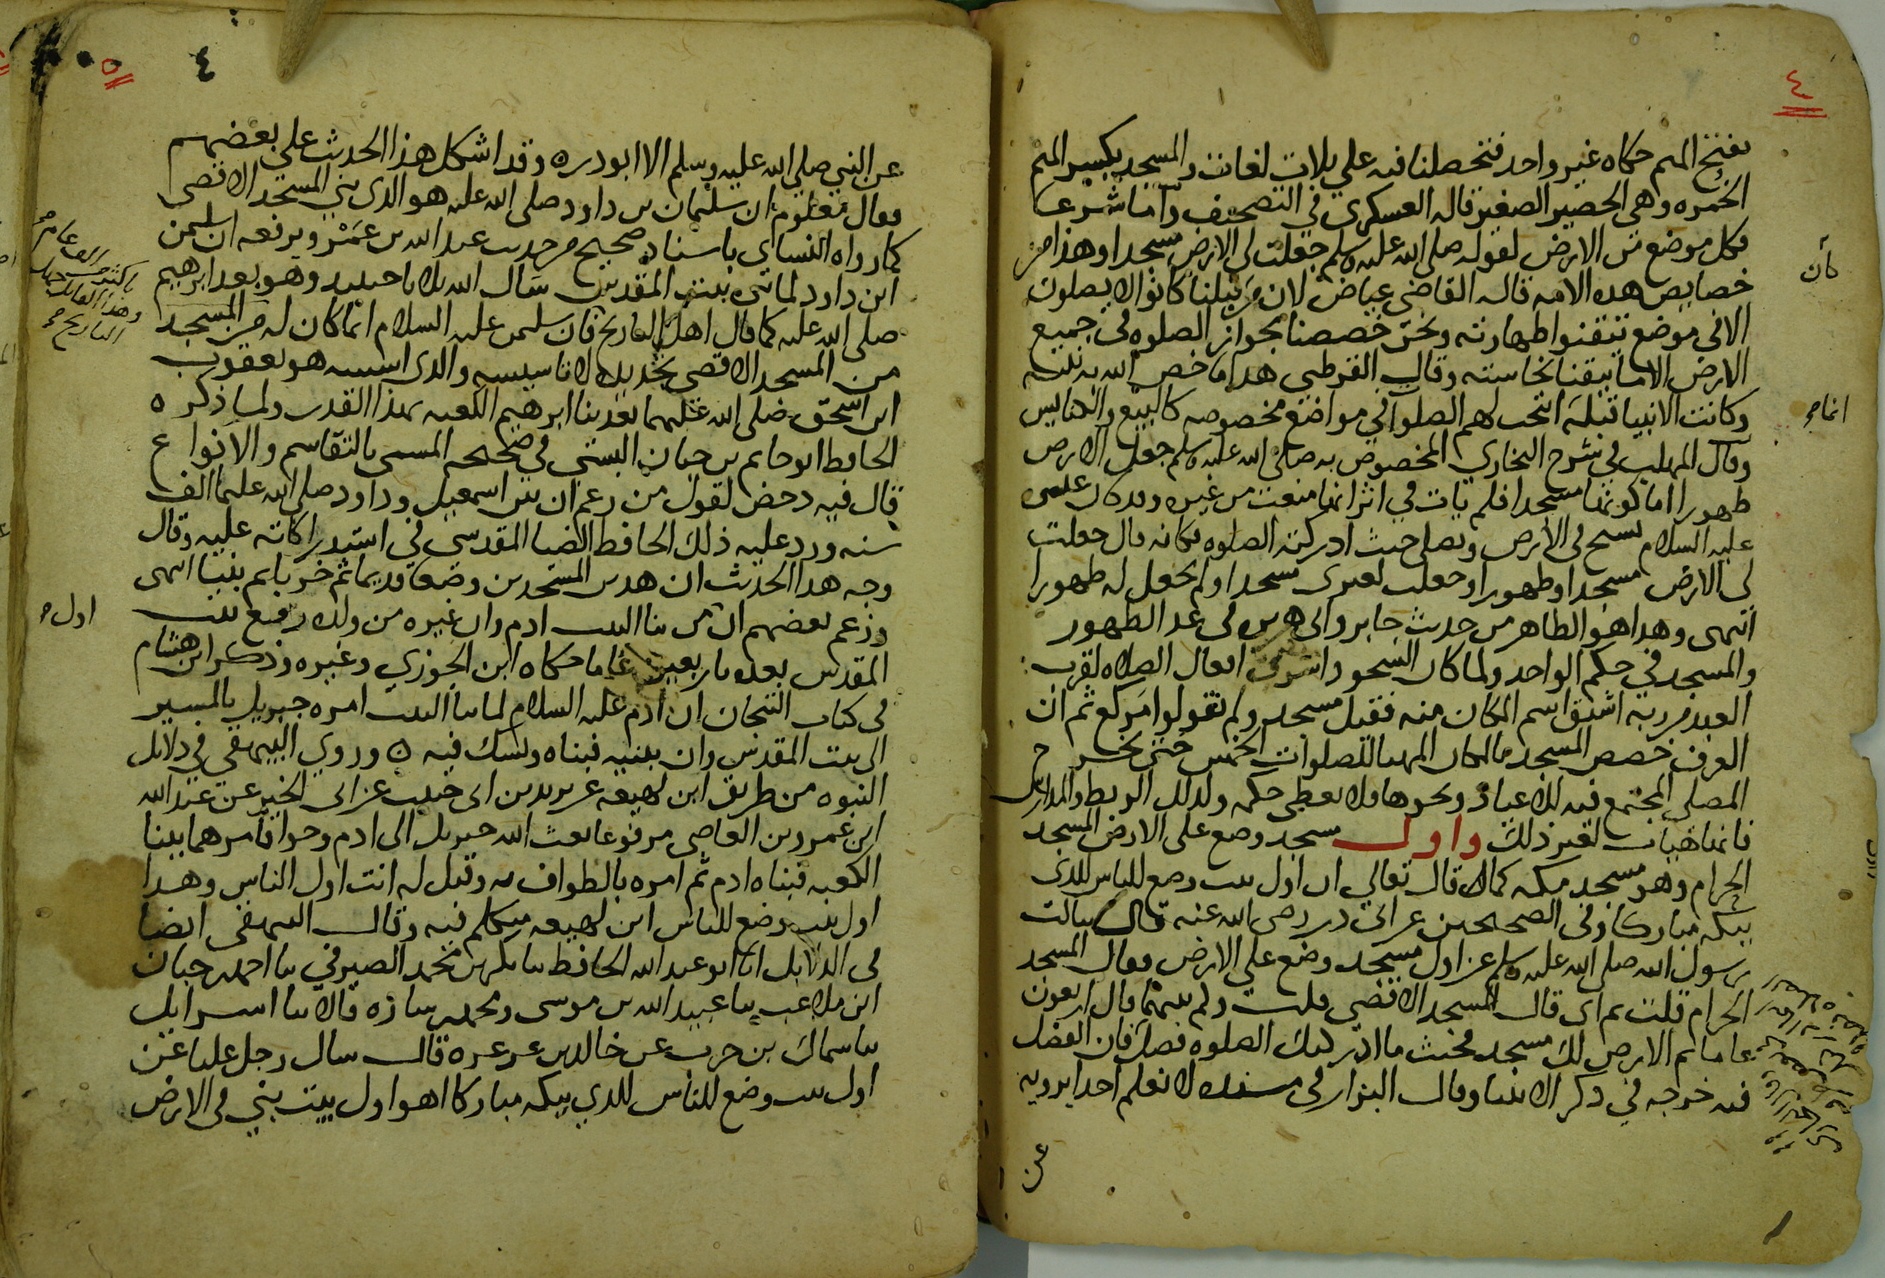 ٤
بفتح الميم حكاه غير واحد فتحصلنا فيه علي ثلاث لغات والمسجد بكسر الميم
الخمره وهي الحصير الصغير قاله العسكري في التصحيف واما شرعا
فكل موضع من الارض لقوله صلى الله عليه وسلم جعلت لي الارض مسجدا وهذا من
خصايص هذه الامه قاله القاضي عياض لان من قبلنا كانوا لا يصلون
الا في موضع تيقنوا طهارته ونحن خصصنا بجواز الصلوه في جميع
الارض الا ما تيقنا نجاسته وقال القرطبي هذا ما خص الله به نبيه
وكانت الانبيا قبله انما تحب لهم الصلوات في مواضع مخصوصه كالبيع والكنايس
وقال المهلب في شرح البخاري المخصوص به صلى الله عليه وسلم جعل الارض
طهورا اما كونها مسجدا فلم يات في اثر انها منعت من غيره وقد كان عيسى
عليه السلام يسيح في الارض ويصلي حيث ادركته الصلوه فكانه قال جعلت
لي الارض مسجدا وطهورا وجعلت لغيري مسجدا ولم يجعل له طهورا
انتهى وهذا هو الظاهر من حديث جابر وابي هريره في عد الطهور
والمسجد في حكم الواحد ولما كان السجود اشرف افعال الصلاه لقرب
العبد من ربه اشتق اسم المكان منه فقيل مسجد ولم يقولوا مركع ثم ان
العرف خصص المسجد بالمكان المهيا للصلوات الخمس حتى يخرج
المصلى المجتمع فيه للاعياد ونحوها فلا يعطى حكمه وكذلك الربط والمدارس
فانها هيات لغير ذلك واول مسجد وضع على الارض المسجد
الحرام وهو مسجد مكه كما قال تعالي ان اول بيت وضع للناس للذي
ببكه مباركا وفي الصحيحين عن ابي ذر رضي الله عنه قال سالت
رسول الله صلى الله عليه وسلم عن اول مسجد وضع علي الارض فقال المسجد
الحرام قلت ثم اي قال المسجد الاقصى قلت وكم بينهما قال اربعون
عاما ثم الارض لك مسجد فحيث ما ادركتك الصلوه فصل فان الفضل
فيه خرجه في ذكر الانبيا وقال البزار في مسنده لا نعلم احدا يرويه
عن
كان
انما
٥
٤
عن النبي صلى الله عليه وسلم الا ابو ذر ه وقد اشكل هذا الحديث علي بعضهم
فقال معلوم ان سليمان بن داود صلى الله عليه هو الذي بنى المسجد الاقصى
كما رواه النساي باسناد صحيح من حديث عبد الله بن عمرو يرفعه ان سليمن
ابن داود لما بنى بيت المقدس سال الله ثلاثا الحديث وهو بعد ابرهيم
صلى الله عليه كما قال اهل التاريخ فان سليمن عليه السلام انما كان له من المسجد
من المسجد الاقصى تجديده لا تاسيسه والذي اسسه هو يعقوب
ابن اسحق صلى الله عليهما بعد بنا ابرهيم الكعبه بهذا القدر ولما ذكره
الحافظ ابو حاتم بن حبان البستي في صحيحه المسمى بالتقاسم والانواع
قال فيه دحض لقول من زعم ان بين اسمعيل وداود صلى الله عليهما الف
سنه ورد عليه ذلك الحافظ الضيا المقدسي في استدراكاته عليه وقال
وجه هذا الحديث ان هدين المسجدين وضعا قديما ثم خربا ثم بنيا انتهى
وزعم بعضهم ان من بنا البيت ادم وان غيره من ولده رفع بيت
المقدس بعده باربعين عاما حكاه ابن الجوزي وغيره وذكر ابن هشام
في كتاب التيجان ان ادم عليه السلام لما بنا البيت امره جبريل بالمسير
الى بيت المقدس وان يبنيه فبناه ونسك فيه ه وروي البيهقي في دلايل
النبوه من طريق ابن لهيعه عن يزيد بن ابي حبيب عن ابي الخير عن عبد الله
ابن عمرو بن العاصي مرفوعا بعث الله جبريل الى ادم وحوا فامرهما ببنا
الكعبه فبناه ادم ثم امره بالطواف به وقيل له انت اول الناس وهذا
اول بيت وضع للناس ابن لهيعه متكلم فيه وقال البيهقي ايضا
في الدلايل انا ابو عبد الله الحافظ ثنا بكر بن محمد الصيرفي ثنا احمد بن حيان
ابن ملاعب ثنا عبيد الله بن موسى ومحمد بن سابق قالا ثنا اسرايل
ثنا سماك بن حرب عن خالد بن عرعره قال سال رجل عليا عن
اول بيت وضع للناس للذي ببكه مباركا اهو اول بيت بني في الارض
اول